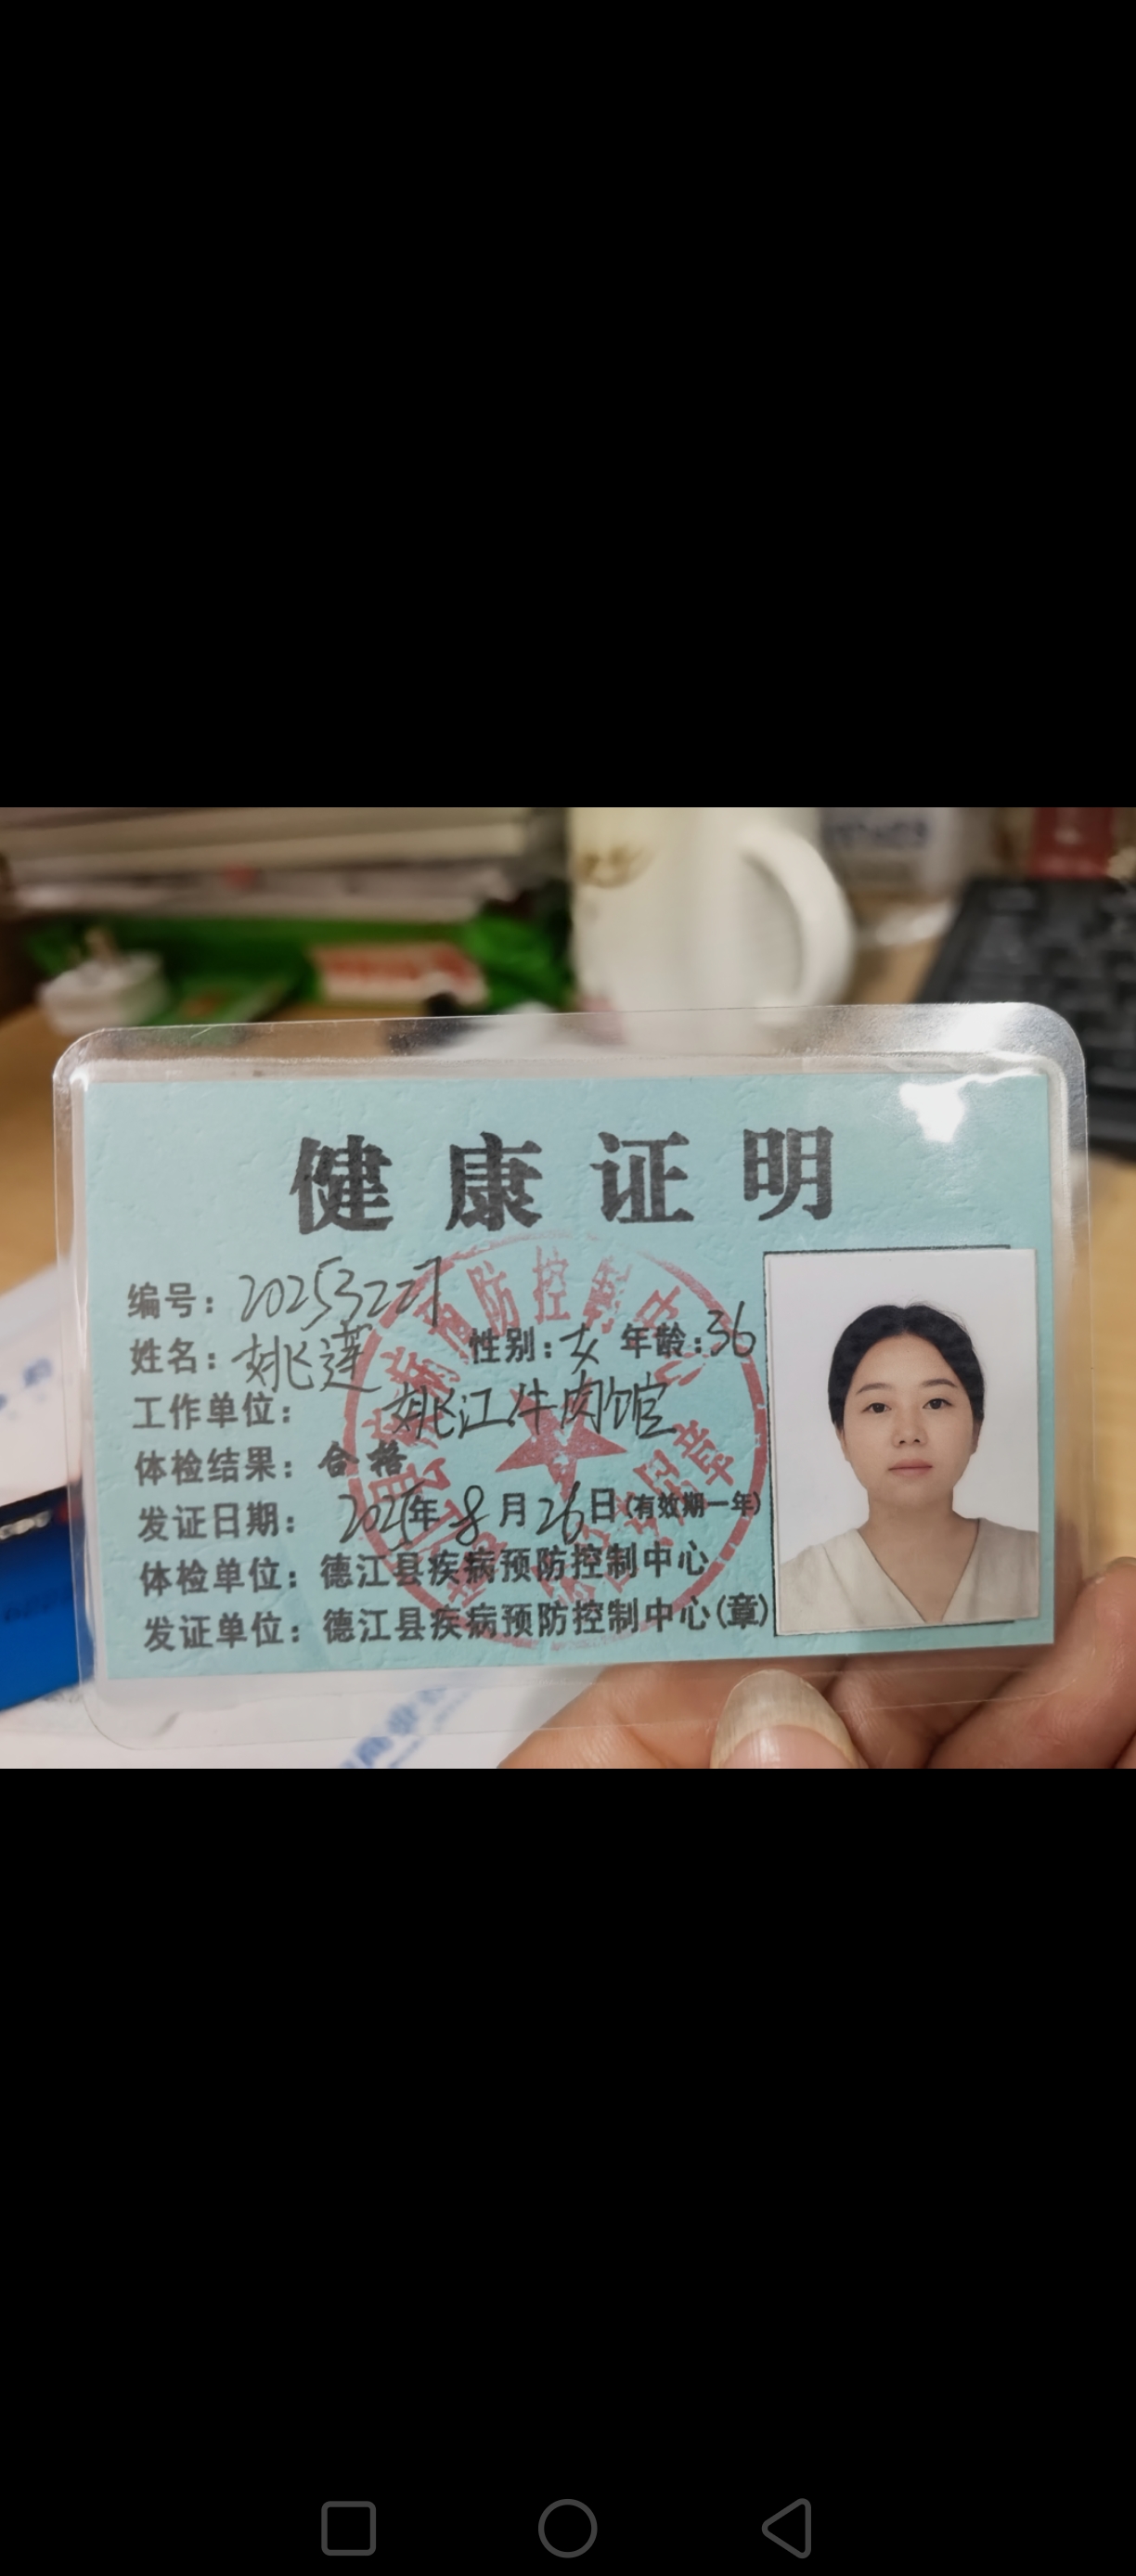 健康证明
编号：20253227
姓名：姚莲 性别：女 年龄：36
工作单位：姚江牛肉馆
体检结果：合格
发证日期：2025年8月26日(有效期一年)
体检单位：德江县疾病预防控制中心
发证单位：德江县疾病预防控制中心(章)